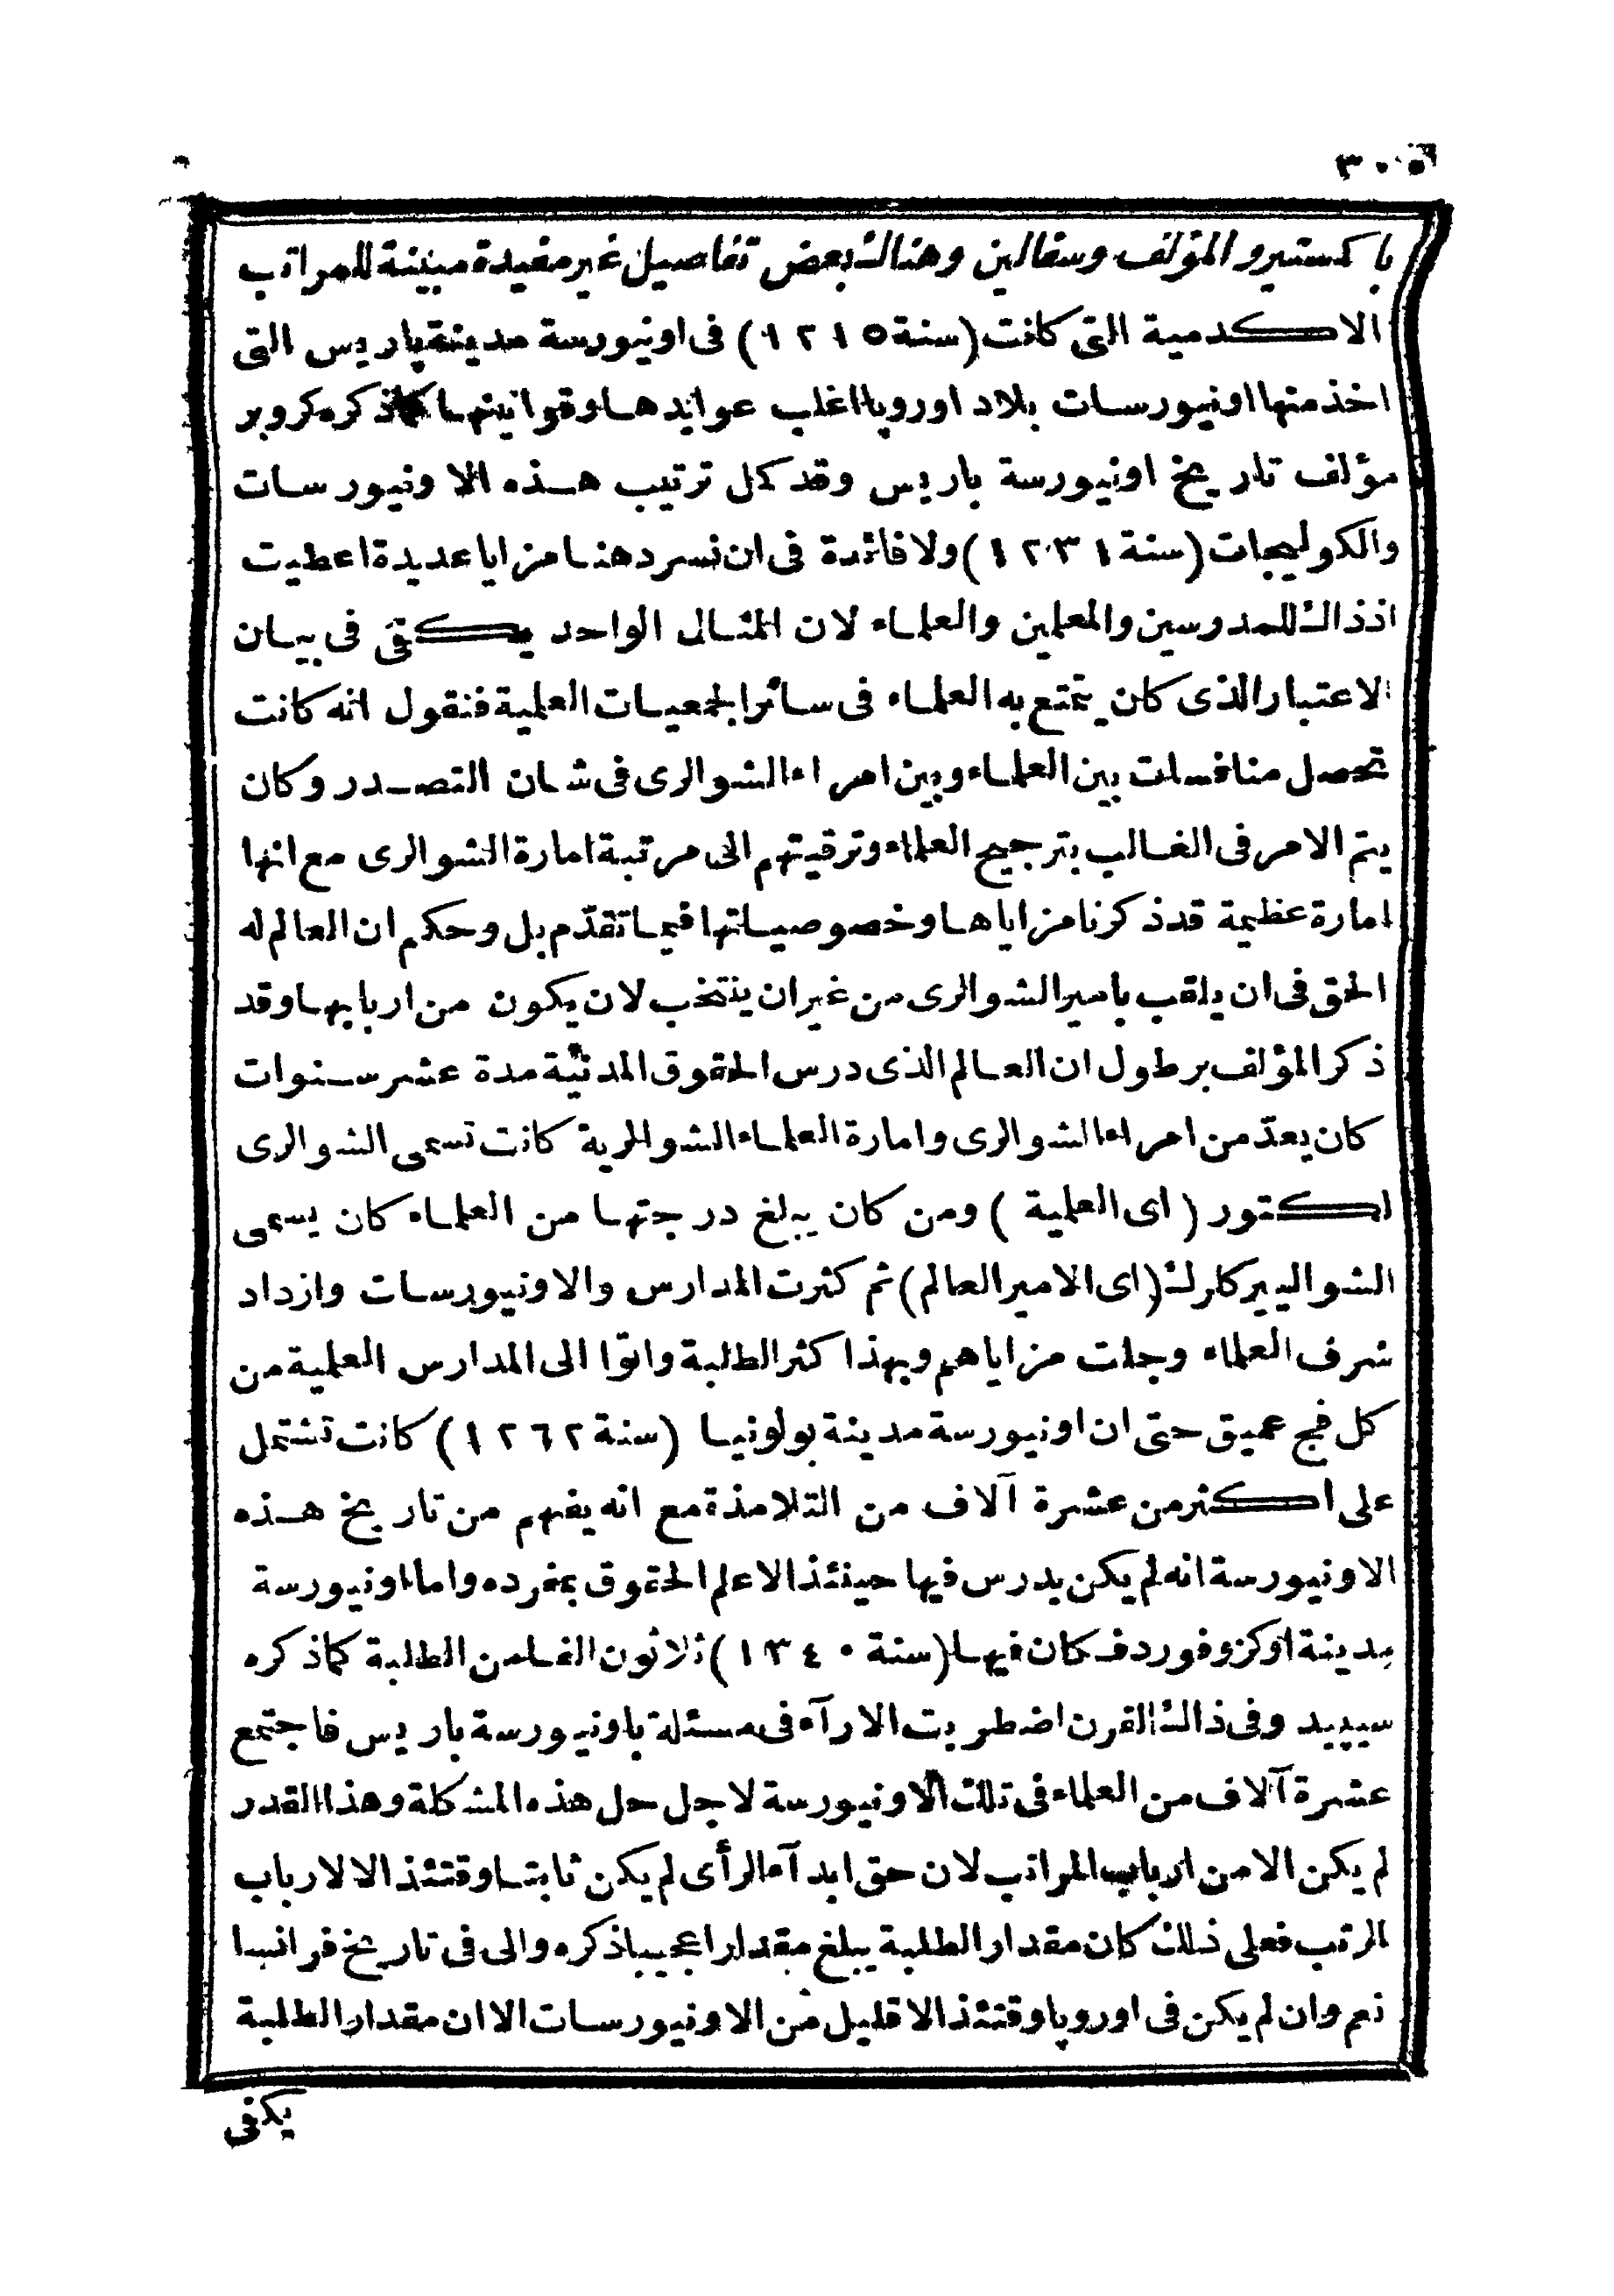 ٣٠٥
باكستيرو المؤلف وسقالين وهناك بعض تفاصيل غير مفيدة مبينة للمراتب
الاكدمية التى كانت (سنة ١٢١٥) فى اونيورسة مدينة پاريس التى
اخذ منها اونيورسات بلاد اوروپا اغلب عوايدها وقوانينها كاذكره كروير
مؤلف تاريخ اونيورسة باريس وقد كمل ترتيب هذه الاونيورسات
والكوليجات (سنة ١٢٣١) ولا فائدة فى ان نسرد هنا مزايا عديدة اعطيت
اذ ذاك للمدرسين والمعلمين والعلماء لان المثال الواحد يكفى فى بيان
الاعتبار الذى كان يتمتع به العلماء فى سائر الجمعيات العلمية فنقول انه كانت
تحصل منافسات بين العلماء وبين امراء الشوالرى فى شان التصدر وكان
يتم الامر فى الغالب بترجيح العلماء وترقيتهم الى مرتبة امارة الشوالرى مع انها
امارة عظيمة قد ذكرنا مزاياها وخصوصياتها فيما تقدّم بل وحكم ان العالم له
الحق فى ان يلقب بامير الشوالرى من غير ان ينتخب لان يكون من اربابها وقد
ذكر المؤلف برطول ان العالم الذى درس الحقوق المدنية مدة عشر سنوات
كان يعدّ من امراء الشوالرى وامارة العلماء الشوالرية كانت تسمى الشوالرى
لكتور (اى العلمية) ومن كان يبلغ درجتها من العلماء كان يسمى
الشواليير كلرك (اى الامير العالم) ثم كثرت المدارس والاونيورسات وازداد
شرف العلماء وجلت مزاياهم وبهذا كثر الطلبة واتوا الى المدارس العلمية من
كل فج عميق حتى ان اونيورسة مدينة بولونيا (سنة ١٢٦٢) كانت تشتمل
على اكثر من عشرة آلاف من التلامذة مع انه يفهم من تاريخ هذه
الاونيورسة انه لم يكن يدرس فيها حينئذ الا علم الحقوق بمفرده واما اونيورسة
مدينة اوكزوفورد فكان فيها (سنة ١٣٤٠) ثلاثون الفا من الطلبة كماذكره
سيپيد وفى ذالك القرن اضطربت الارآء فى مسئلة باونيورسة باريس فاجتمع
عشرة آلاف من العلماء فى تلك الاونيورسة لاجل حل هذه المشكلة وهذا القدر
لم يكن الا من ارباب المراتب لان حق ابدآء الرأى لم يكن ثابتا وقتئذ الا لارباب
الرتب فعلى ذلك كان مقدار الطلبة يبلغ مقدارا عجيبا ذكره والى فى تاريخ فرانسا
نعم وان لم يكن فى اوروپا وقتئذ الا قليل من الاونيورسات الا ان مقدار الطلبة
يكفى